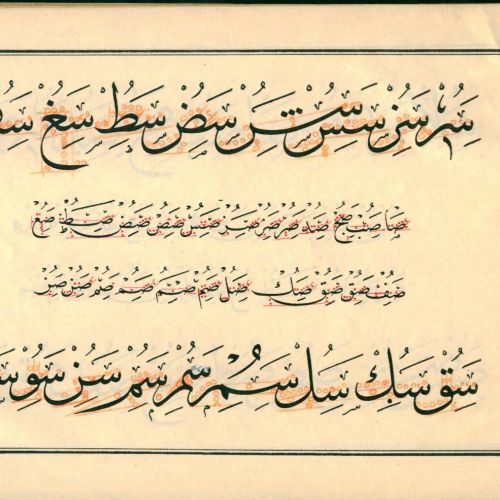 سر سز سس سض سط سغ
صا صب صد صر صر صر صس صص صض صط صع
صف صق صق صك صل صم صم صم صم صن
سق سك سل سم سم سم سن سو